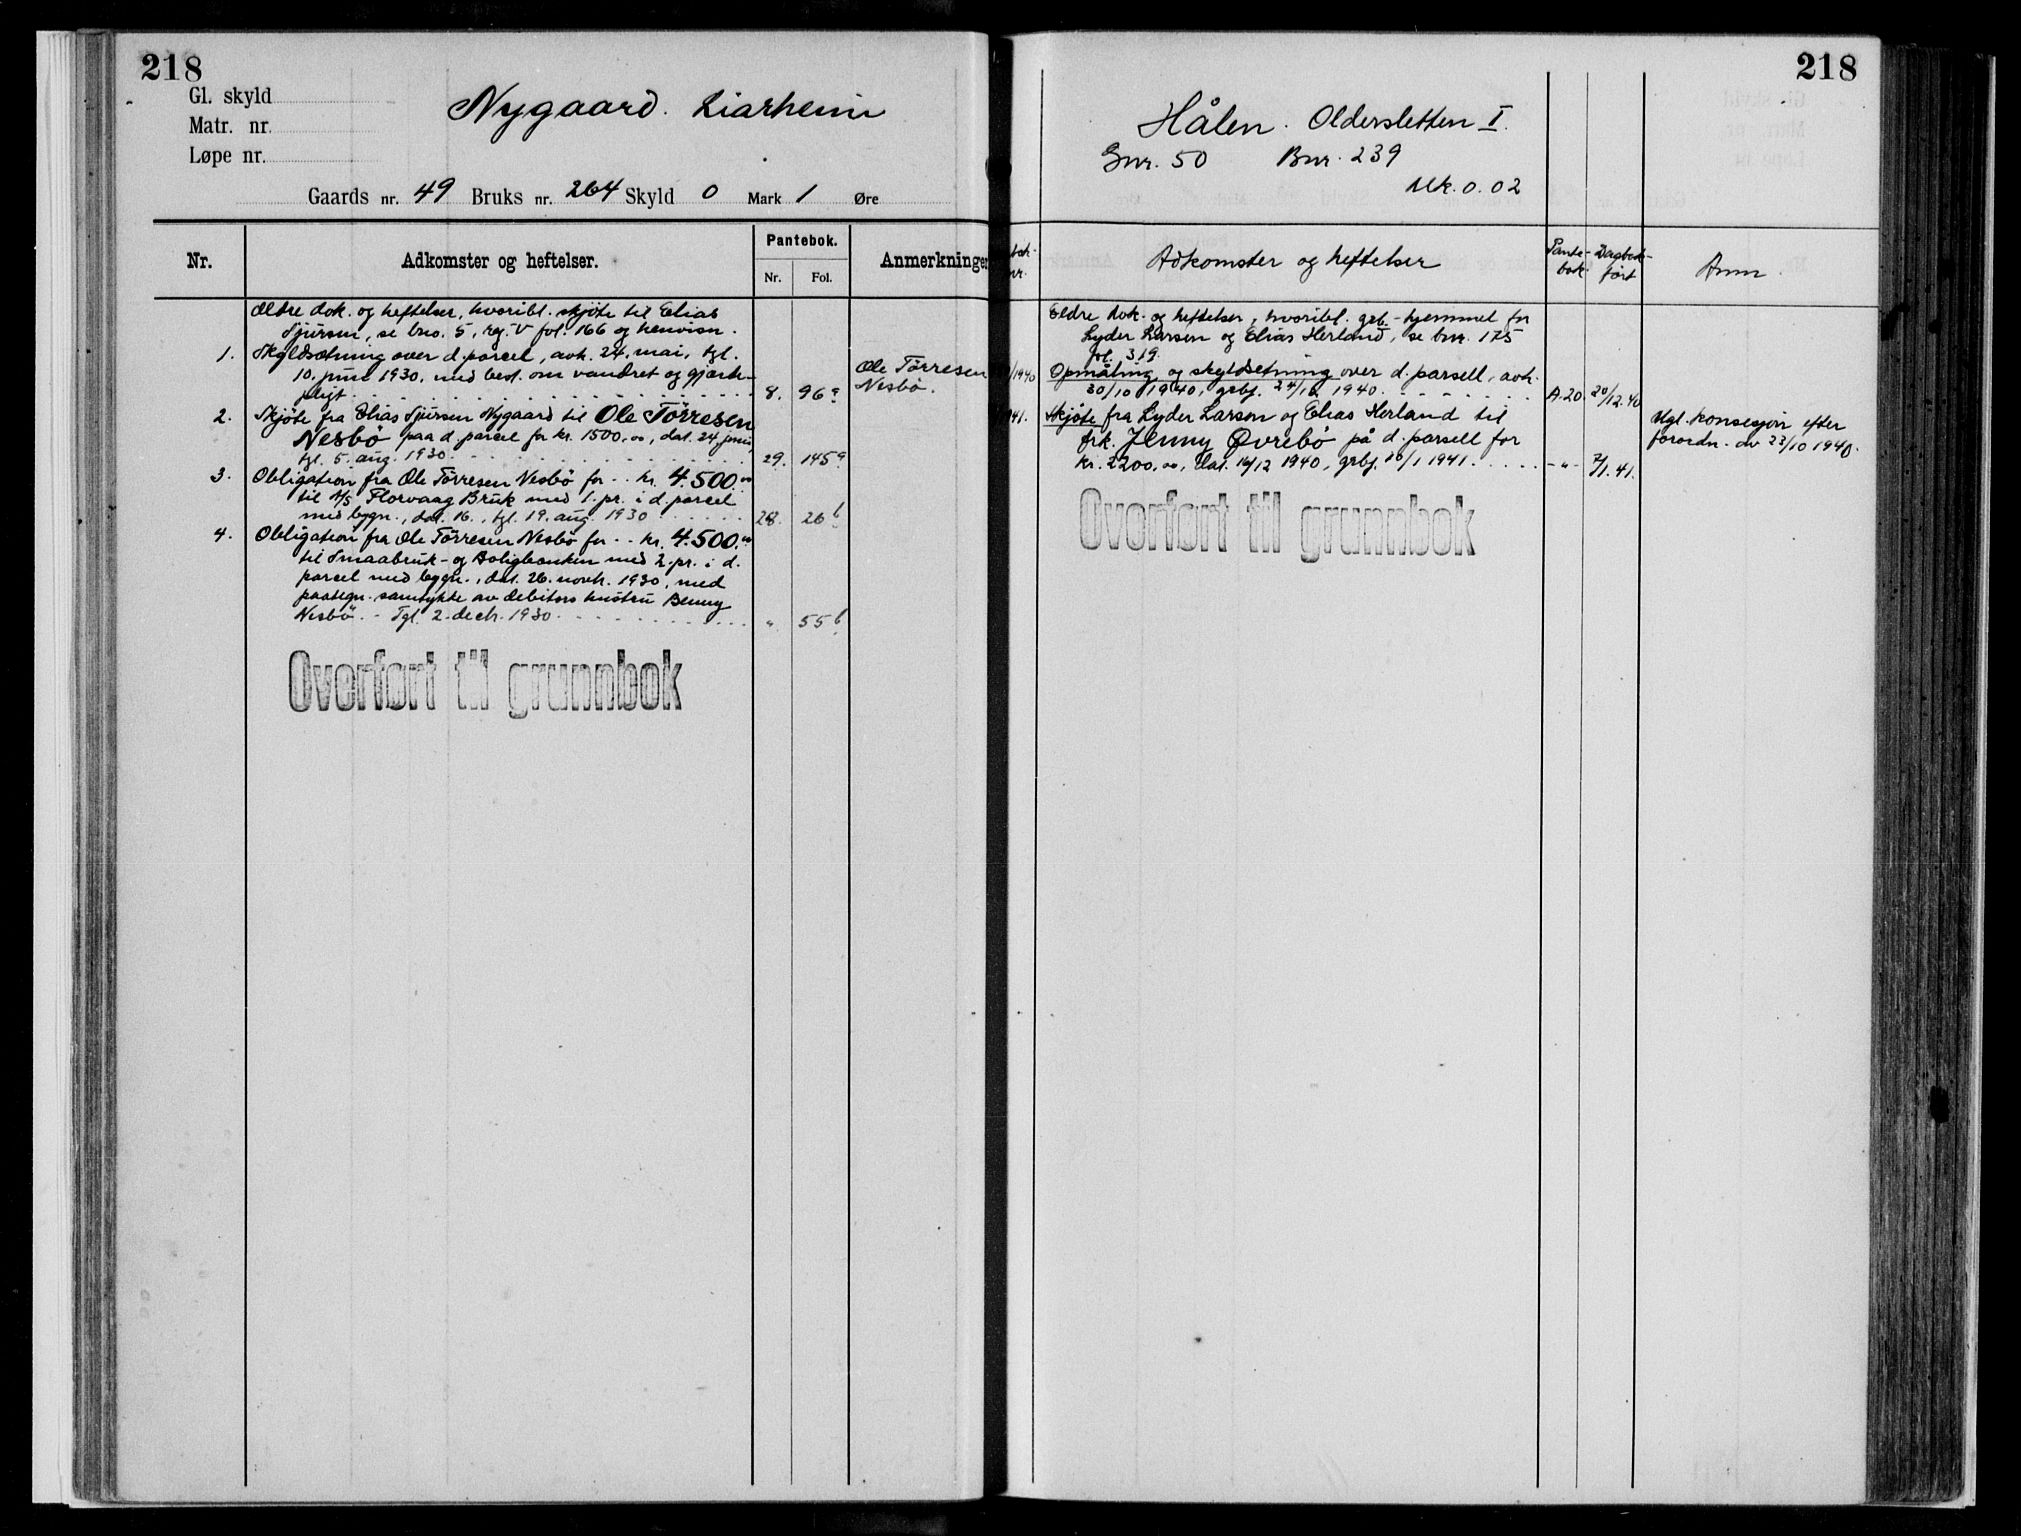 218
Gl. skyld
Matr. nr.
Løpe nr.
Nygaard. Liarheim
Gaards nr. 49 Bruks nr. 264 Skyld 0 Mark 1 Øre
Nr.
Adkomster og heftelser.
Pantebok.
Nr. Fol.
Anmerkninger
Ældre dok. og heftelser, hvoribl. skjöte til Elias
Sjursen, se bno. 5, reg. V fol. 166 og henvisn.
1. Skyldsætning over d. parcel, avh. 24. mai, tgl.
10. juni 1930, med best. om vandret og gjærde-
pligt. 8. 96 a
Ole Törresen
Nesbö.
2. Skjöte fra Elias Sjursen Nygaard til Ole Törresen
Nesbö paa d. parcel for kr. 1500,00, dat. 24 juni,
tgl. 5. aug. 1930. 29. 145 a
3. Obligation fra Ole Törresen Nesbö for - - kr. 4.500.00
til A/S Florvaag Bruk med 1. pr. i d. parcel
med bygn., dat. 16., tgl. 19. aug. 1930 28. 26 b
4. Obligation fra Ole Törresen Nesbö for - - kr. 4.500.00
til Smaabruk- og Boligbanken med 2. pr. i d.
parcel med bygn., dat. 26. novb. 1930, med
paategn. samtykke av debitors hustru Benny
Nesbö. - Tgl. 2. decb. 1930. " 55 b
Overført til grunnbok
218
Hålen. Oldersletten I.
Gnr. 50 Bnr. 239
Mk. 0.02
Adkomster og heftelser
Pante-
bok
Dagbok-
ført
Anm.
Eldre dok. og heftelser, hvoribl. grb.-hjemmel for
Lyder Larsen og Elias Herland, se bnr. 175
fol. 319.
/1940 Opmåling og skyldsetning over d. parsell, avh.
30/10 1940, grbf. 24/12 1940. A. 20. 20/12. 40
41. Skjöte fra Lyder Larsen og Elias Herland til
frk. Jenny Øvrebö på d. parsell for
kr. 2200,00, dat. 16/12 1940, grbf. /1 1941. - " - 7/1. 41.
Mgl. konsesjon efter
forordn. av 23/10 1940.
Overført til grunnbok